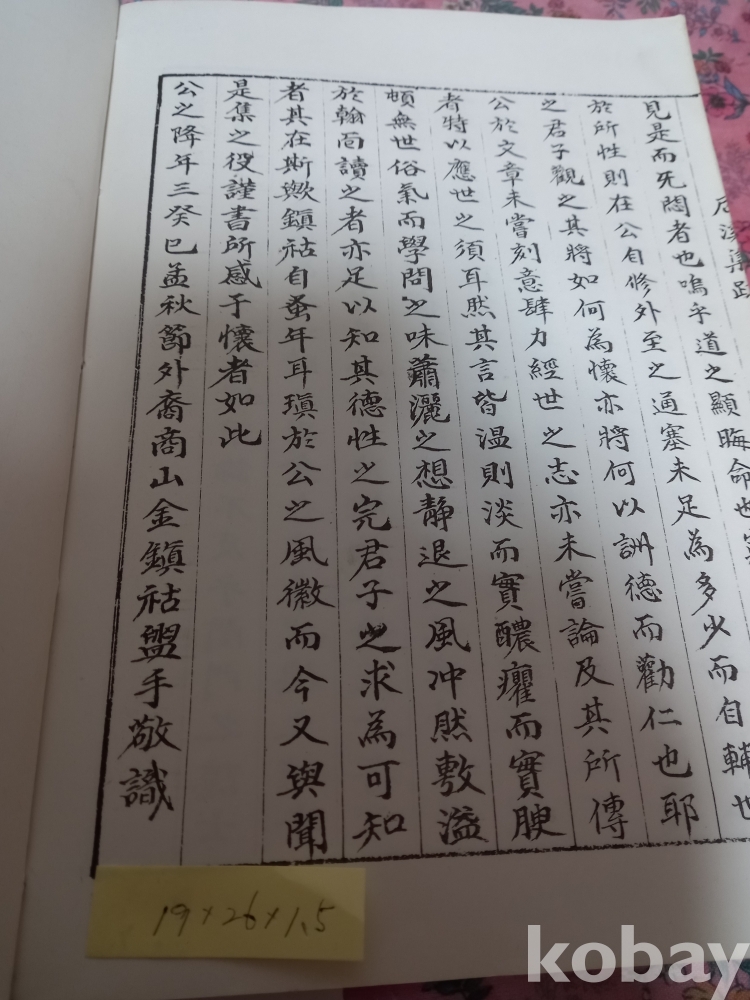 見是而死悶者也嗚乎道之顯晦命也
於所性則在公自修外至之通塞未足為多少而自輔世
之君子觀之其將如何為懷亦將何以訓德而勸仁也耶
公於文章未嘗刻意肆力經世之志亦未嘗論及其所傳
者特以應世之須耳然其言皆温則淡而實醲癯而實腴
頓無世俗氣而學問之味蕭灑之想靜退之風冲然敷溢
於翰而讀之者亦足以知其德性之完君子之求為可知
者其在斯歟鎭祜自蚤年耳瑱於公之風徽而今又與聞
是集之役謹書所感于懷者如此
公之降年三癸巳孟秋節外裔商山金鎭祜盥手敬識
19×26×1.5
kobay